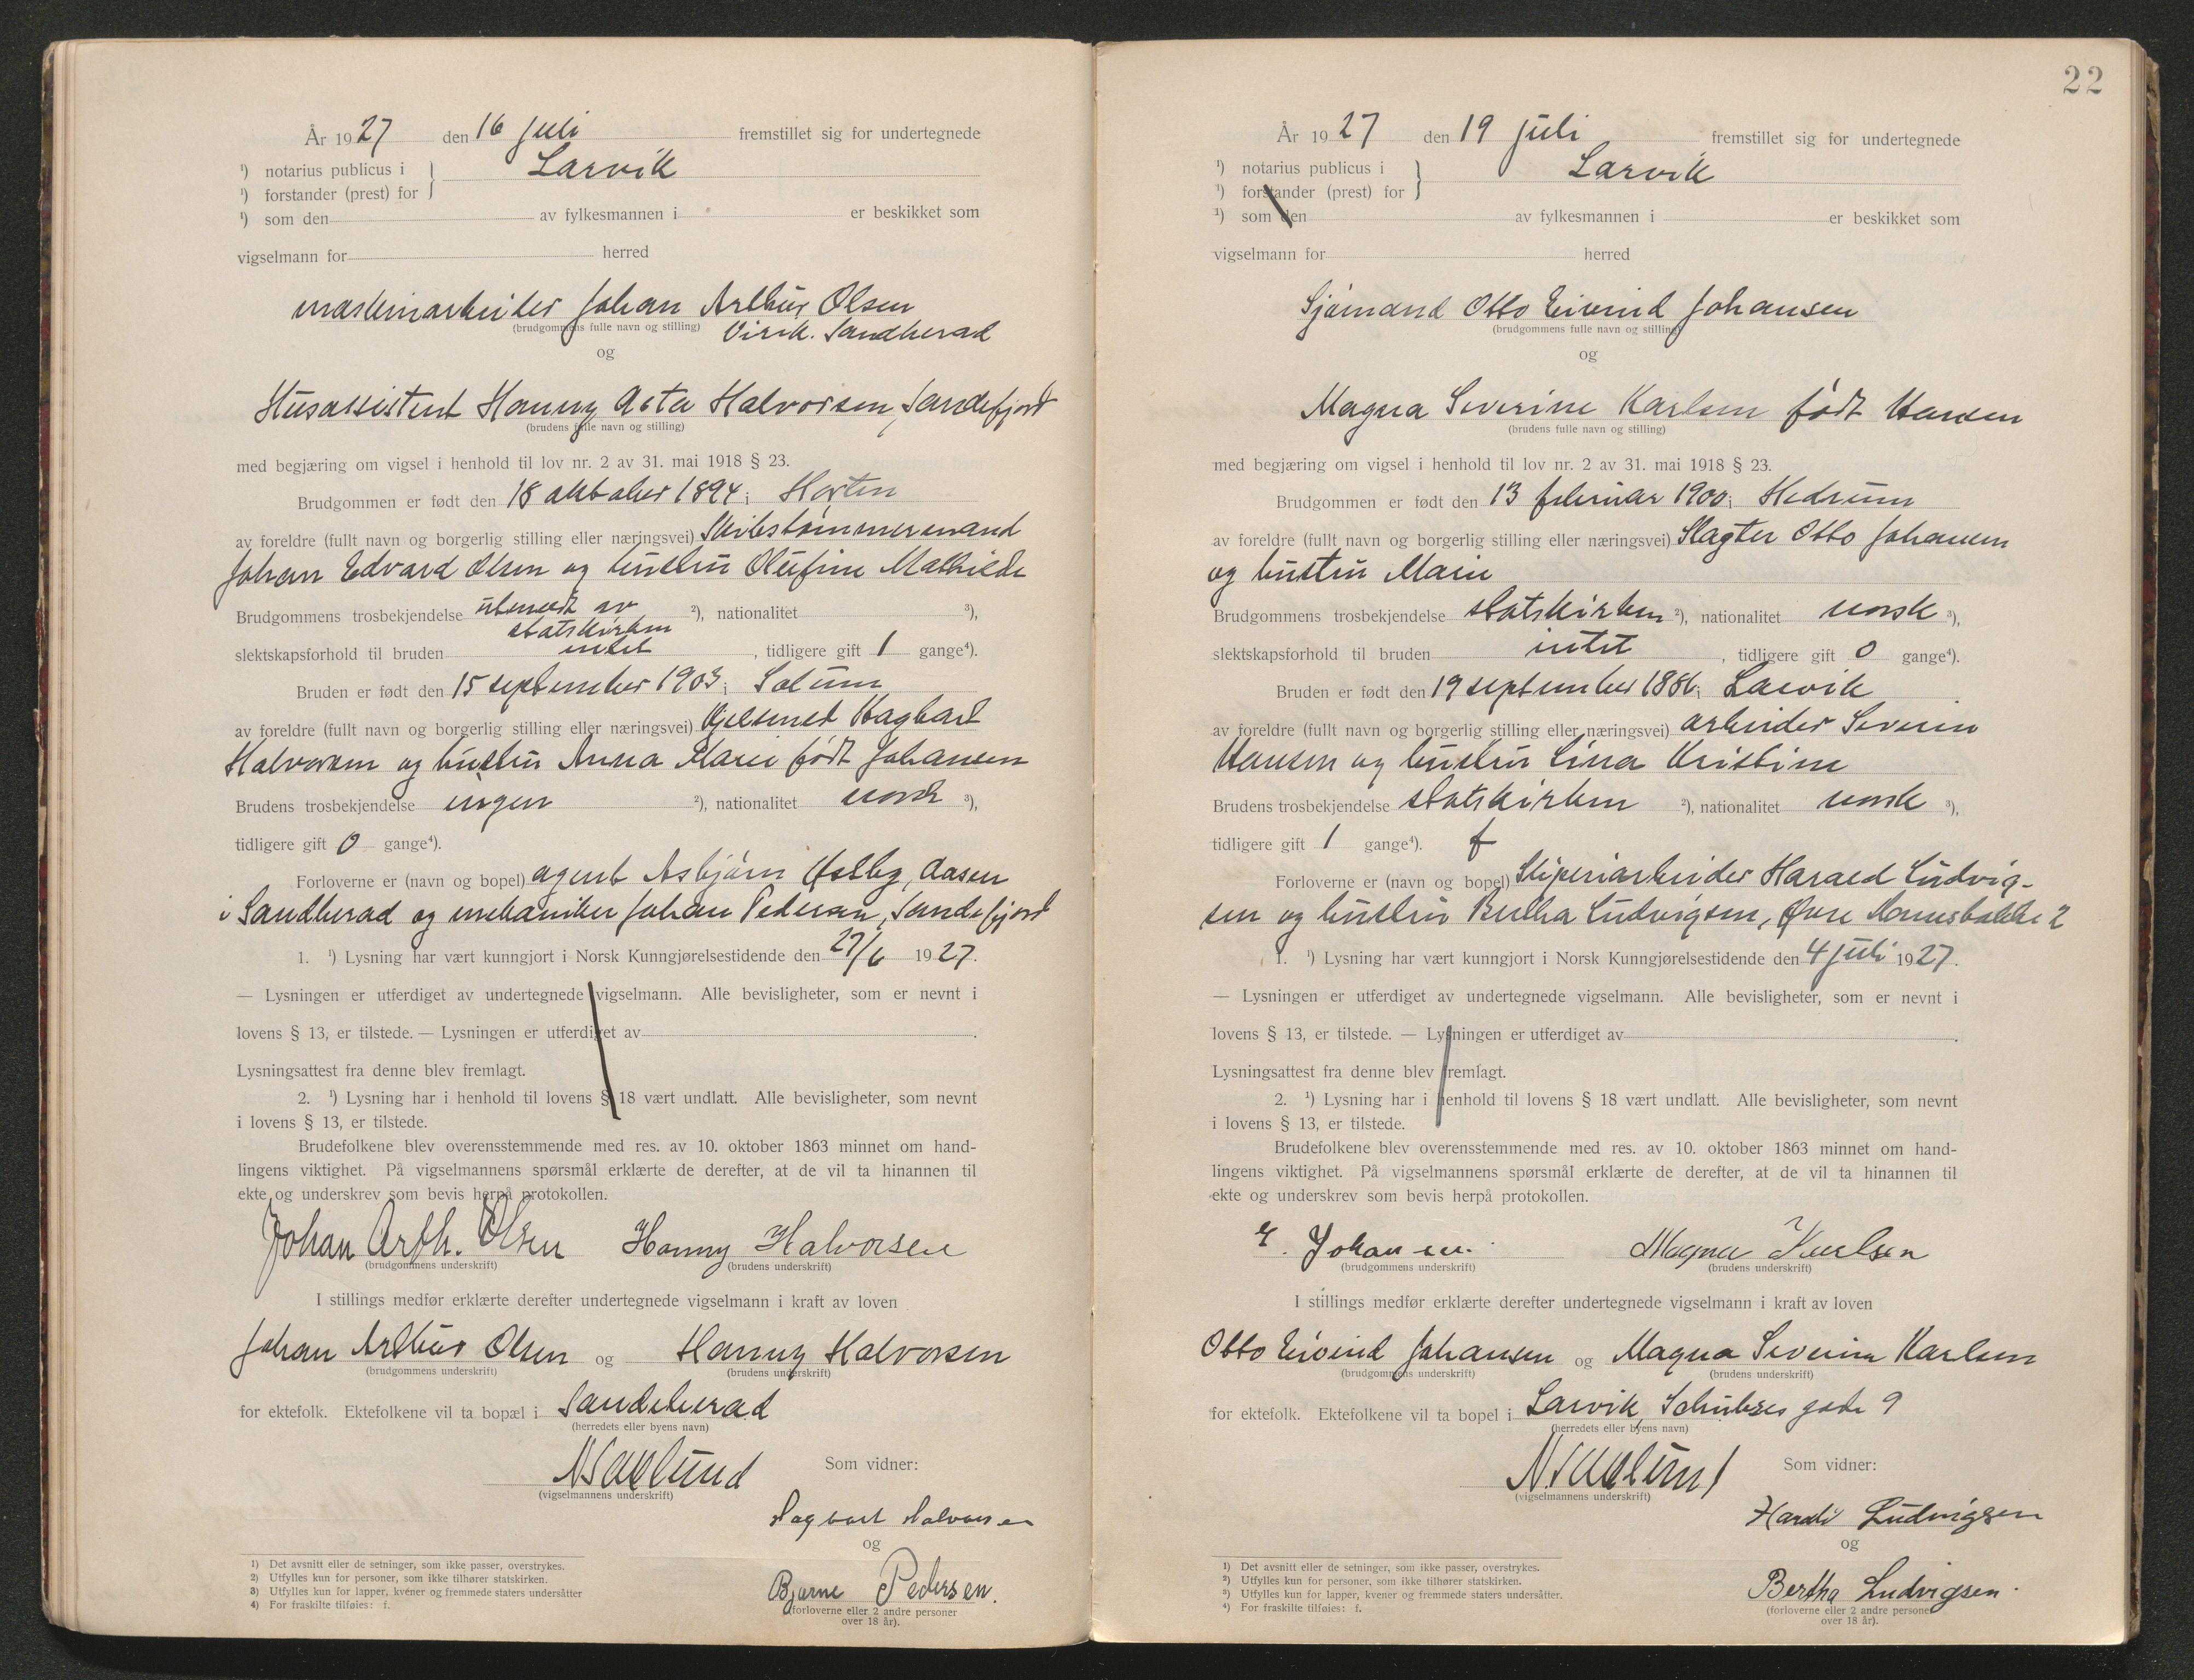 År 1927 den 16 juli fremstillet sig for undertegnede
¹) notarius publicus i } Larvik
¹) forstander (prest) for
¹) som den av fylkesmannen i er beskikket som
vigselmann for herred
maskinarbeider Johan Arthur Olsen
(brudgommens fulle navn og stilling) Virik. Sandherad
og
Husassistent Hanny Asta Halvorsen, Sandefjord
(brudens fulle navn og stilling)
med begjæring om vigsel i henhold til lov nr. 2 av 31. mai 1918 § 23.
Brudgommen er født den 18 oktober 1894 i Horten
av foreldre (fullt navn og borgerlig stilling eller næringsvei) Skibstømmermand
Johan Edvard Olsen og hustru Olufine Mathilde
Brudgommens trosbekjendelse utmeldt av ²), nationalitet ³),
statskirken
slektskapsforhold til bruden intet , tidligere gift 1 gange⁴).
Bruden er født den 15 september 1903 i Solum
av foreldre (fullt navn og borgerlig stilling eller næringsvei) Hagbart
Halvorsen og hustru Anna Marie født Johansen
Brudens trosbekjendelse ingen ²), nationalitet norsk ³),
tidligere gift 0 gange⁴).
Forloverne er (navn og bopel) agent Asbjørn Østby, Aasen
i Sandherad og mekaniker Johan Pedersen, Sandefjord
1. ¹) Lysning har vært kunngjort i Norsk Kunngjørelsestidende den 27/6 1927.
— Lysningen er utferdiget av undertegnede vigselmann. Alle bevisligheter, som er nevnt i
lovens § 13, er tilstede. — Lysningen er utferdiget av .
Lysningsattest fra denne blev fremlagt.
2. ¹) Lysning har i henhold til lovens § 18 vært undlatt. Alle bevisligheter, som nevnt
i lovens § 13, er tilstede.
Brudefolkene blev overensstemmende med res. av 10. oktober 1863 minnet om hand-
lingens viktighet. På vigselmannens spørsmål erklærte de derefter, at de vil ta hinannen til
ekte og underskrev som bevis herpå protokollen.
Johan Arth. Olsen Hanny Halvorsen
(brudgommens underskrift) (brudens underskrift)
I stillings medfør erklærte derefter undertegnede vigselmann i kraft av loven
Johan Arthur Olsen og Hanny Halvorsen
(brudgommens underskrift) (brudens underskrift)
for ektefolk. Ektefolkene vil ta bopæl i Sandeherad
(herredets eller byens navn)
(vigselmannens underskrift) Som vidner:
Hagbart Halvorsen
og
Bjarne Pedersen.
(forloverne eller 2 andre personer
over 18 år).
1) Det avsnitt eller de setninger, som ikke passer, overstrykes.
2) Utfylles kun for personer, som ikke tilhører statskirken.
3) Utfylles kun for lapper, kvener og fremmede staters undersåtter
4) For fraskilte tilføies: f.
22
År 1927 den 19 juli fremstillet sig for undertegnede
¹) notarius publicus i } Larvik
¹) forstander (prest) for
¹) som den av fylkesmannen i er beskikket som
vigselmann for herred
Sjømand Otto Eivind Johansen
(brudgommens fulle navn og stilling)
og
Magna Severine Karlsen født Hansen
(brudens fulle navn og stilling)
med begjæring om vigsel i henhold til lov nr. 2 av 31. mai 1918 § 23.
Brudgommen er født den 13 februar 1900 i Hedrum
av foreldre (fullt navn og borgerlig stilling eller næringsvei) Slagter Otto Johansen
og hustru Marie
Brudgommens trosbekjendelse statskirken ²), nationalitet norsk ³),
slektskapsforhold til bruden intet , tidligere gift 0 gange⁴).
Bruden er født den 19 september 1886 i Larvik
av foreldre (fullt navn og borgerlig stilling eller næringsvei) arbeider Severin
Hansen og hustru Lina Kristine
Brudens trosbekjendelse statskirken ²), nationalitet norsk ³),
tidligere gift 1 gange⁴). f
Forloverne er (navn og bopel) Sliperiarbeider Harald Ludvig-
sen og hustru Bertha Ludvigsen, Øvre 2
1. ¹) Lysning har vært kunngjort i Norsk Kunngjørelsestidende den 4 juli 1927.
— Lysningen er utferdiget av undertegnede vigselmann. Alle bevisligheter, som er nevnt i
lovens § 13, er tilstede. — Lysningen er utferdiget av .
Lysningsattest fra denne blev fremlagt.
2. ¹) Lysning har i henhold til lovens § 18 vært undlatt. Alle bevisligheter, som nevnt
i lovens § 13, er tilstede.
Brudefolkene blev overensstemmende med res. av 10. oktober 1863 minnet om hand-
lingens viktighet. På vigselmannens spørsmål erklærte de derefter, at de vil ta hinannen til
ekte og underskrev som bevis herpå protokollen.
E. Johansen. Magna Karlsen
(brudgommens underskrift) (brudens underskrift)
I stillings medfør erklærte derefter undertegnede vigselmann i kraft av loven
Otto Eivind Johansen og Magna Severine Karlsen
(brudgommens underskrift) (brudens underskrift)
for ektefolk. Ektefolkene vil ta bopel i Larvik, Schultzes gade 9
(herredets eller byens navn)
(vigselmannens underskrift) Som vidner:
Harald Ludvigsen
og
Bertha Ludvigsen.
(forloverne eller 2 andre personer
over 18 år).
1) Det avsnitt eller de setninger, som ikke passer, overstrykes.
2) Utfylles kun for personer, som ikke tilhører statskirken.
3) Utfylles kun for lapper, kvener og fremmede staters undersåtter.
4) For fraskilte tilføies: f.